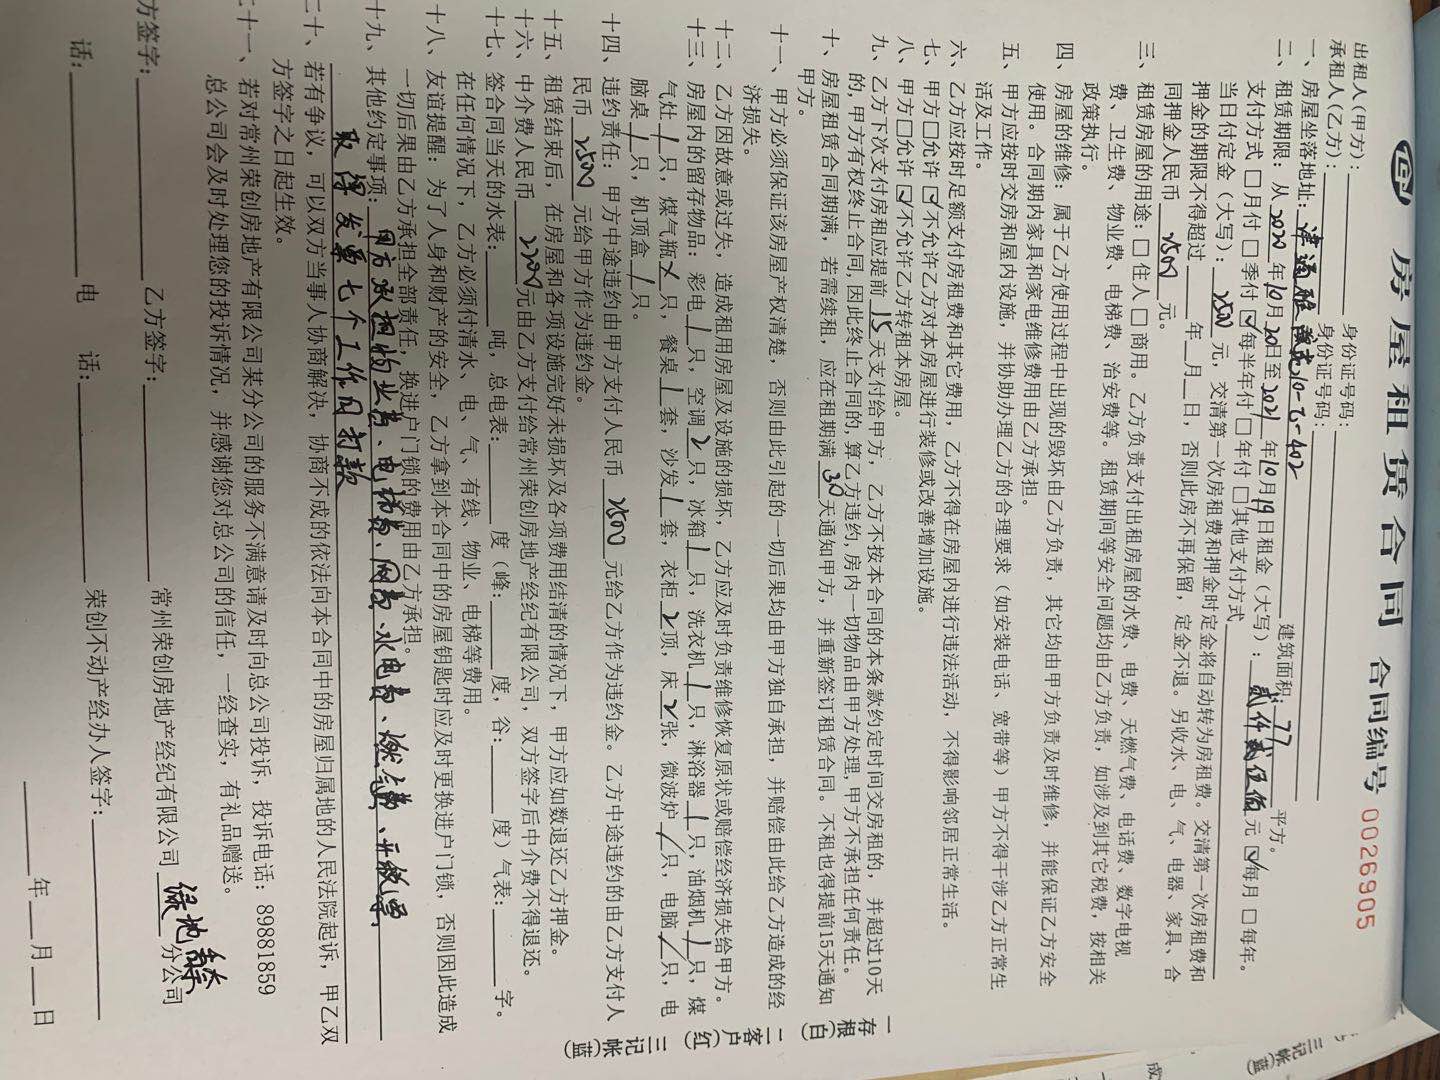 房屋租赁合同 合同编号 0026905
出租人(甲方): 身份证号码:
承租人(乙方): 身份证号码:
一、房屋坐落地址: 10-乙-402 建筑面积: 77 平方。
二、租赁期限:从2020年10月20日至2021年10月19日租金(大写): 元 ☑每月 □每年。
支付方式 □月付 □季付 ☑每半年付 □年付 □其他支付方式
当日付定金(大写): 2500 元,交清第一次房租费和押金时定金将自动转为房租费。交清第一次房租费和
押金的期限不得超过 年 月 日,否则此房不再保留,定金不退。另收水、电、气、电器、家具、合
同押金人民币 2500 元。
三、租赁房屋的用途:□住人 □商用。乙方负责支付出租房屋的水费、电费、天燃气费、电话费、数字电视
费、卫生费、物业费、电梯费、治安费等。租赁期间等安全问题均由乙方负责,如涉及到其它税费,按相关
政策执行。
四、房屋的维修:属于乙方使用过程中出现的毁坏由乙方负责,其它均由甲方负责及时维修,并能保证乙方安全
使用。合同期内家具和家电维修费用由乙方承担。
五、甲方应按时交房和屋内设施,并协助办理乙方的合理要求(如安装电话、宽带等)甲方不得干涉乙方正常生
活及工作。
六、乙方应按时足额支付房租费和其它费用,乙方不得在房屋内进行违法活动,不得影响邻居正常生活。
七、甲方□允许 ☑不允许乙方对本房屋进行装修或改善增加设施。
八、甲方□允许 ☑不允许乙方转租本房屋。
九、乙方下次支付房租应提前 15 天支付给甲方,乙方不按本合同的本条款约定时间交房租的,并超过10天
的,甲方有权终止合同,因此终止合同的,算乙方违约,房内一切物品由甲方处理,甲方不承担任何责任。
十、房屋租赁合同期满,若需续租,应在租期满 30 天通知甲方,并重新签订租赁合同。不租也得提前15天通知
甲方。
十一、甲方必须保证该房屋产权清楚,否则由此引起的一切后果均由甲方独自承担,并赔偿由此给乙方造成的经
济损失。
十二、乙方因故意或过失,造成租用房屋及设施的损坏,乙方应及时负责维修恢复原状或赔偿经济损失给甲方。
十三、房屋内的留存物品:彩电 1 只,空调 2 只,冰箱 1 只,洗衣机 1 只,淋浴器 1 只,油烟机 1 只,煤
气灶 1 只,煤气瓶 只,餐桌 1 套,沙发 1 套,衣柜 2 顶,床 2 张,微波炉 / 只,电脑 / 只,电
脑桌 1 只,机顶盒 1 只。
十四、违约责任:甲方中途违约由甲方支付人民币 2500 元给乙方作为违约金。乙方中途违约的由乙方支付人
民币 2500 元给甲方作为违约金。
十五、租赁结束后,在房屋和各项设施完好未损坏及各项费用结清的情况下,甲方应如数退还乙方押金。
十六、中介费人民币 2200 元由乙方支付给常州荣创房地产经纪有限公司,双方签字后中介费不得退还。
十七、签合同当天的水表: 吨,总电表: 度(峰: 度,谷: 度)气表: 字。
在任何情况下,乙方必须付清水、电、气、有线、物业、电梯等费用。
十八、友谊提醒:为了人身和财产的安全,乙方拿到本合同中的房屋钥匙时应及时更换进户门锁,否则因此造成
一切后果由乙方承担全部责任,换进户门锁的费用由乙方承担。
十九、其他约定事项: 承担物业费、电梯费、网费、水电费、燃气费、开收
取得发票七个工作日打款
二十、若有争议,可以双方当事人协商解决,协商不成的依法向本合同中的房屋归属地的人民法院起诉,甲乙双
方签字之日起生效。
二十一、若对常州荣创房地产有限公司某分公司的服务不满意请及时向总公司投诉,投诉电话:89881859
总公司会及时处理您的投诉情况,并感谢您对总公司的信任,一经查实,有礼品赠送。
方签字: 乙方签字: 常州荣创房地产经纪有限公司 绿地香 分公司
话: 电 话: 荣创不动产经办人签字:
年 月 日
一存根(白) 二客户(红) 三记帐(蓝)
三记帐(蓝)